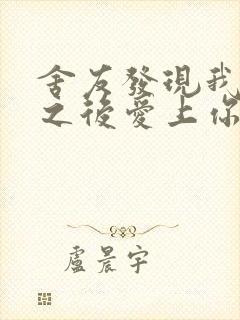 舍友發現我
之後愛上你
盧晨宇